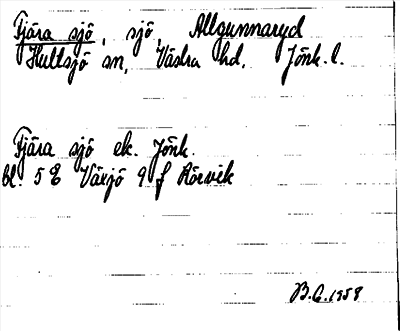 Fjära sjö, sjö, Allgunnaryd
Hultsjö sn, Västra hd, Jönk. l.
Fjära sjö ek. Jönk.
bl. 5 E Växjö 9 f Rörvik
B.G. 1958